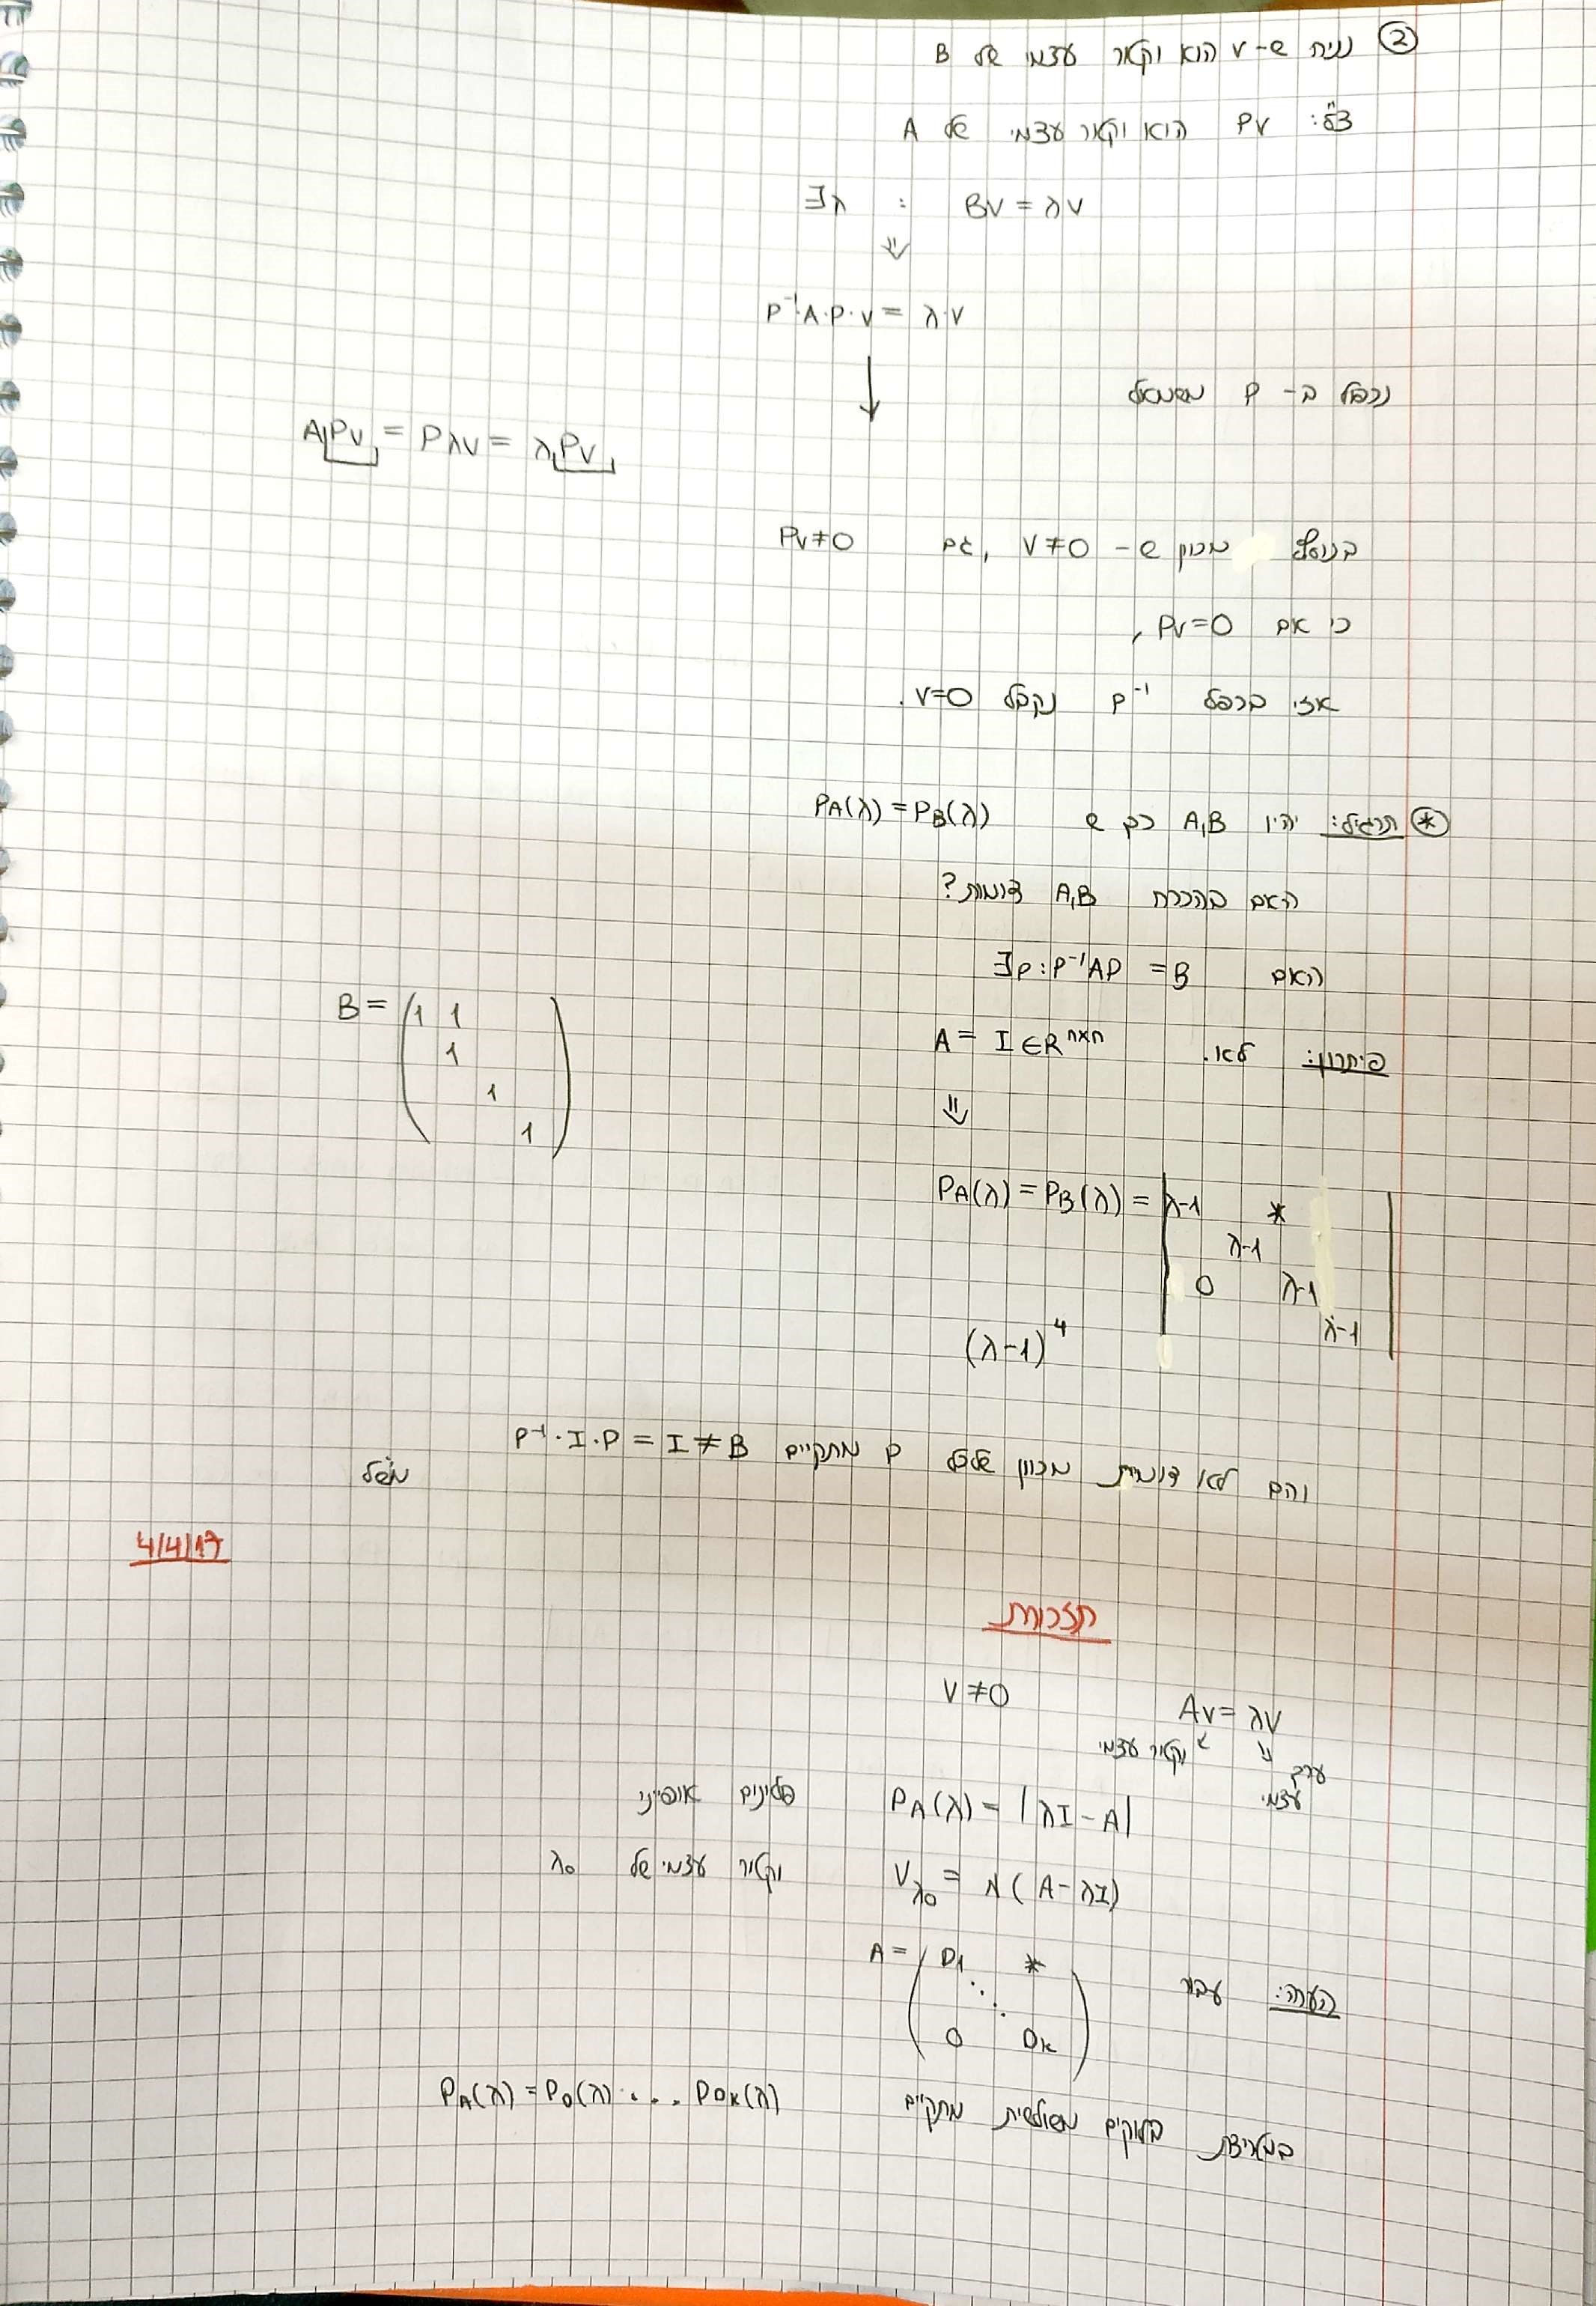 ② נניח ש-v הוא וקטור עצמי של B
צ"ל: Pv הוא וקטור עצמי של A
∃λ : Bv = λv
⇓
P⁻¹·A·P·v = λ·v
↓
נכפול ב-P משמאל
APv = Pλv = λPv
בנוסף מכוון ש-v≠0, גם Pv≠0
כי אם Pv=0,
אזי בכפל P⁻¹ נקבל v=0.
⊛ תרגיל: יהיו A,B כך ש P_A(λ)=P_B(λ)
האם בהכרח A,B דומות?
האם ∃P: P⁻¹AP = B
פיתרון: לא. A = I ∈ R^{n×n}
B = (1 1
1
1
1)
⇓
P_A(λ) = P_B(λ) = | λ-1 *
λ-1
0 λ-1
λ-1 |
(λ-1)⁴
והם לא דומות מכוון שלכל P מתקיים P⁻¹·I·P = I ≠ B
משל
4/4/17
תזכורת
Av = λv v≠0
וקטור עצמי
ערך
עצמי
P_A(λ) = |λI-A| פולינום אופייני
V_{λ₀} = N(A-λI) וקטור עצמי של λ₀
הערה: עבור A = ( D₁ *
⋱
0 D_k )
במטריצת בלוקים משולשית מתקיים P_A(λ) = P_D(λ)·...P_{D_k}(λ)